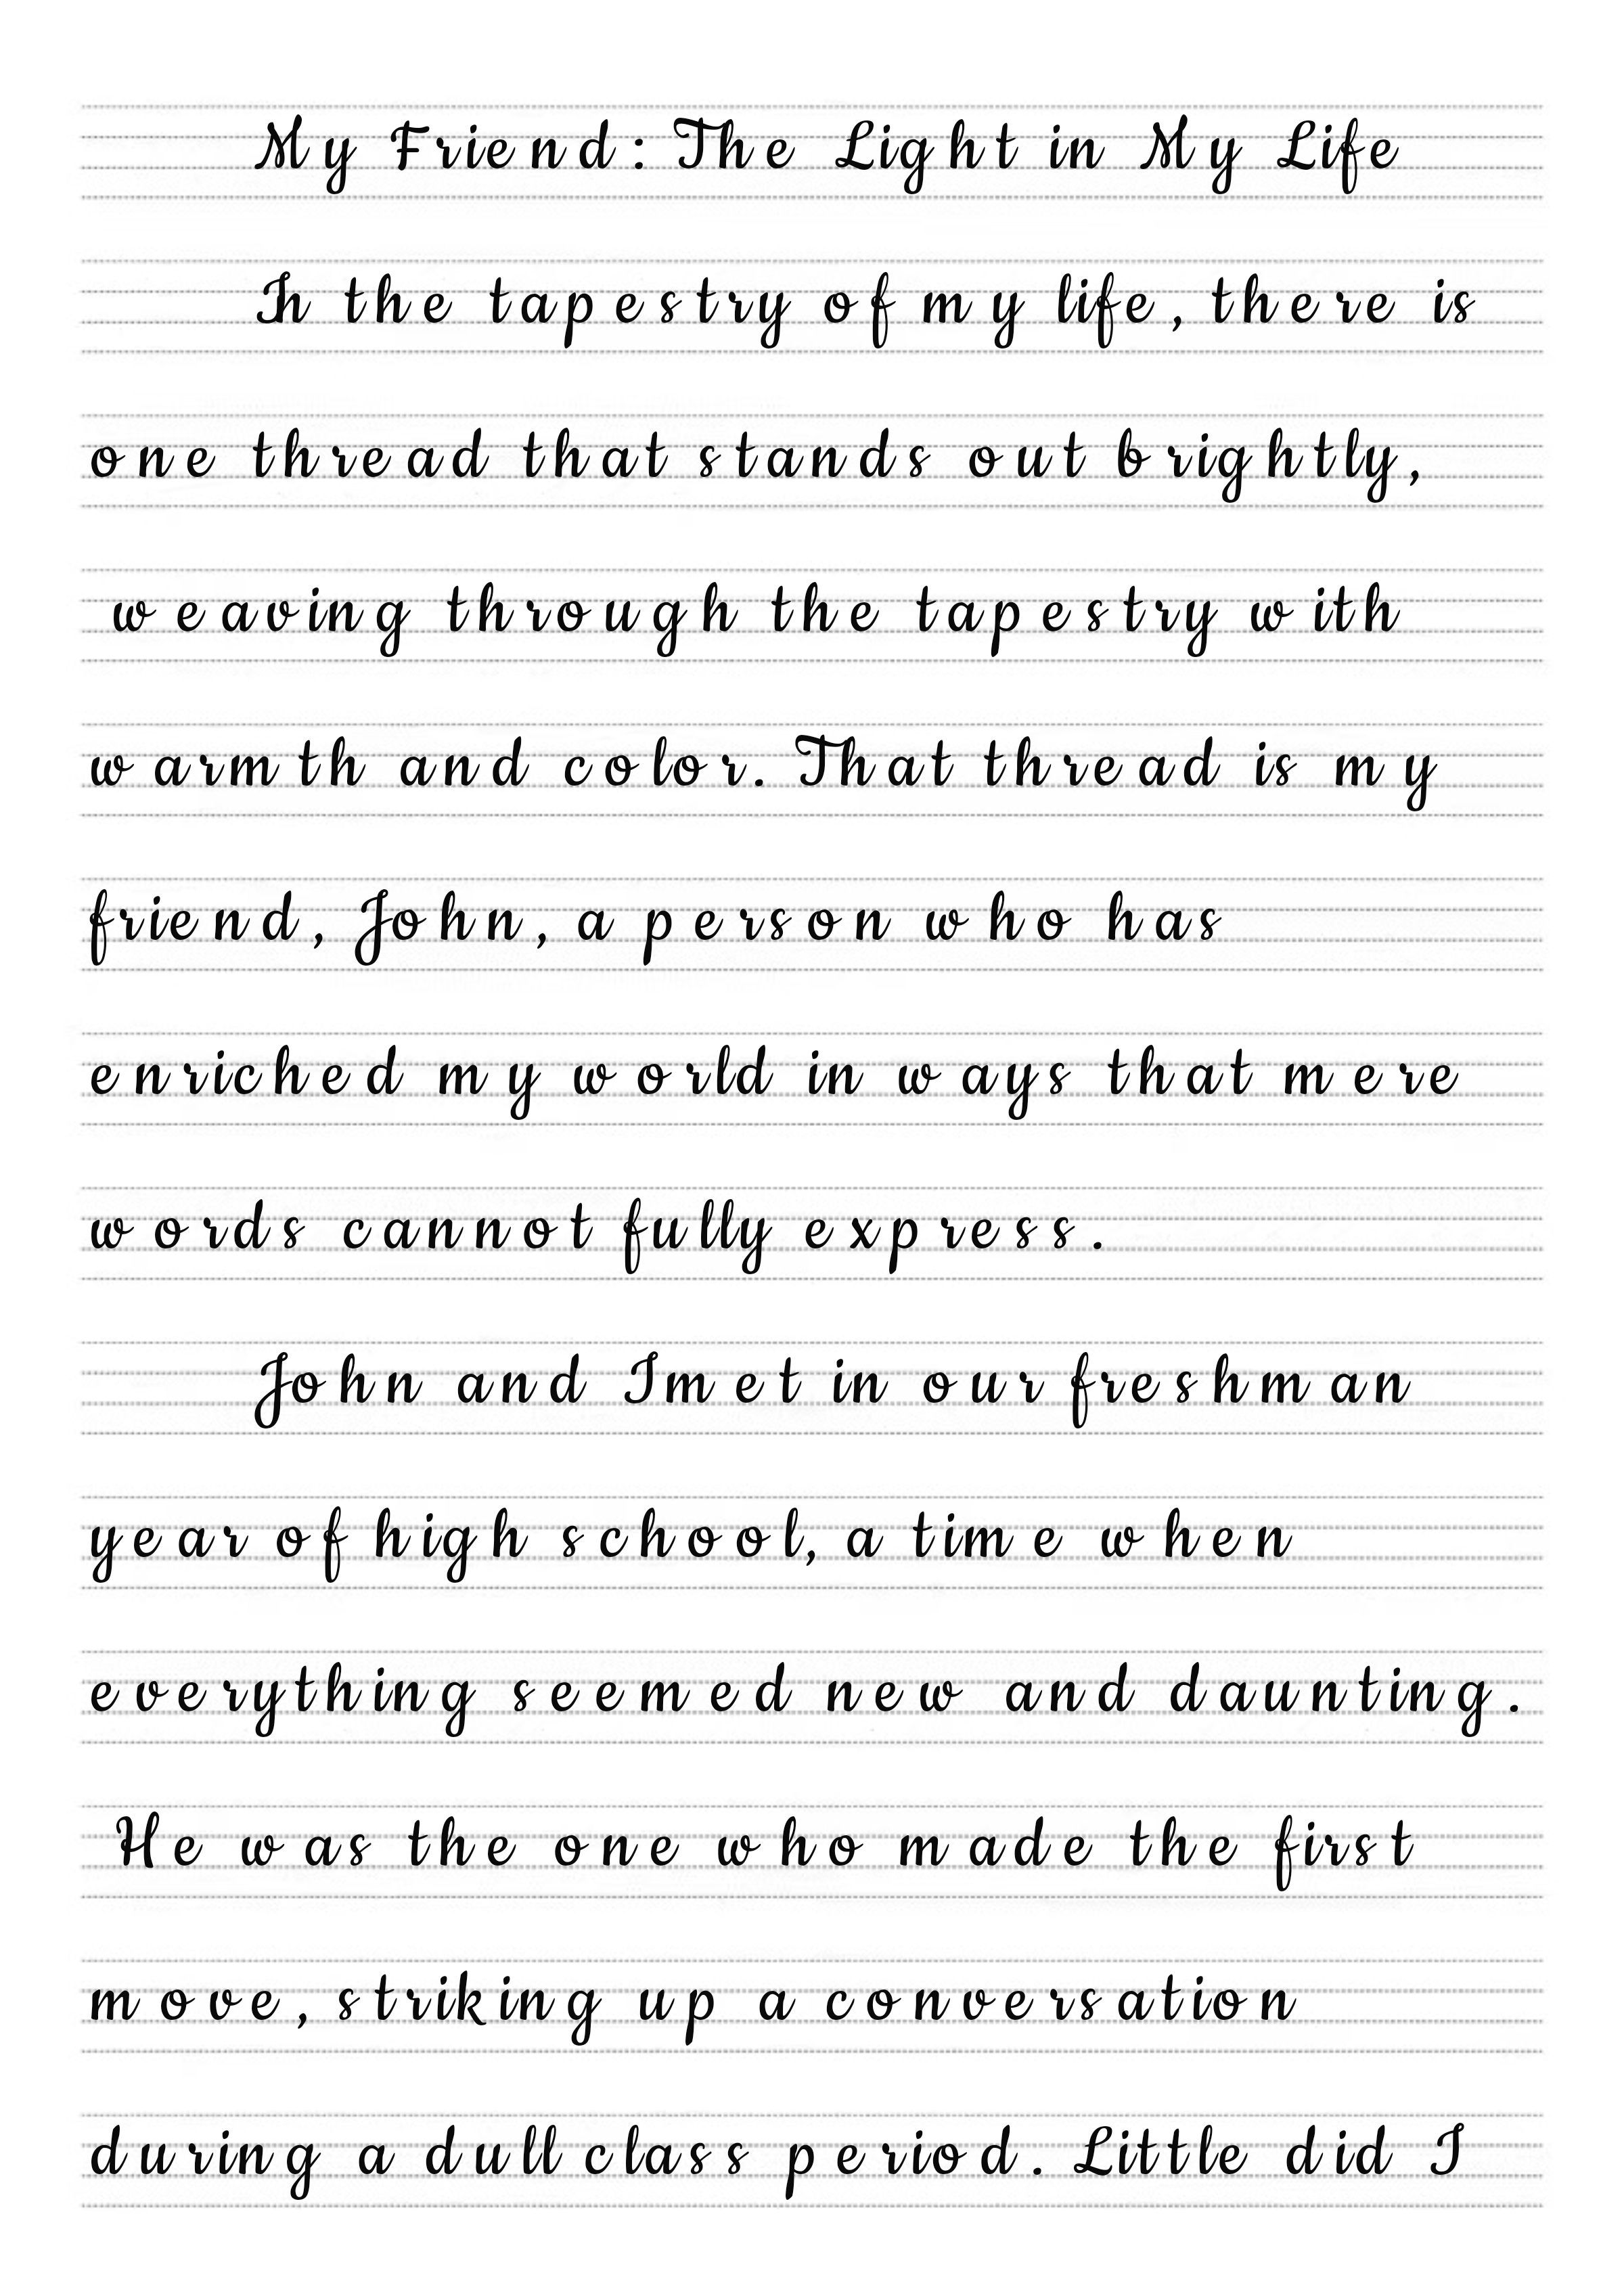 My Friend: The Light in My Life
In the tapestry of my life, there is
one thread that stands out brightly,
weaving through the tapestry with
warmth and color. That thread is my
friend, John, a person who has
enriched my world in ways that mere
words cannot fully express.
John and I met in our freshman
year of high school, a time when
everything seemed new and daunting.
He was the one who made the first
move, striking up a conversation
during a dull class period. Little did I